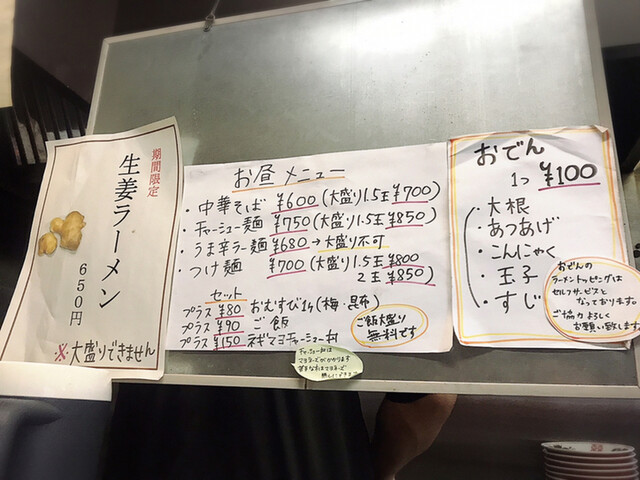 期間限定
生姜ラーメン
650円
※大盛りできません
お昼メニュー
・中華そば ¥600(大盛り1.5玉¥700)
・チャーシュー麺 ¥750(大盛り1.5玉¥850)
・うま辛ラー麺 ¥680→大盛り不可
・つけ麺 ¥700(大盛り1.5玉¥800
2玉¥850)
セット
プラス ¥80 おむすび1ヶ(梅・昆布)
プラス ¥90 ご飯
プラス ¥150 ネギマヨチャーシュー丼
ご飯大盛り
無料です
チャーシュー丼は
マヨネーズがかかります
おでん
1つ ¥100
・大根
・あつあげ
・こんにゃく
・玉子
・すじ
おでんの
ラーメントッピングは
セルフサービスと
なっております。
ご協力よろしく
お願い致します。